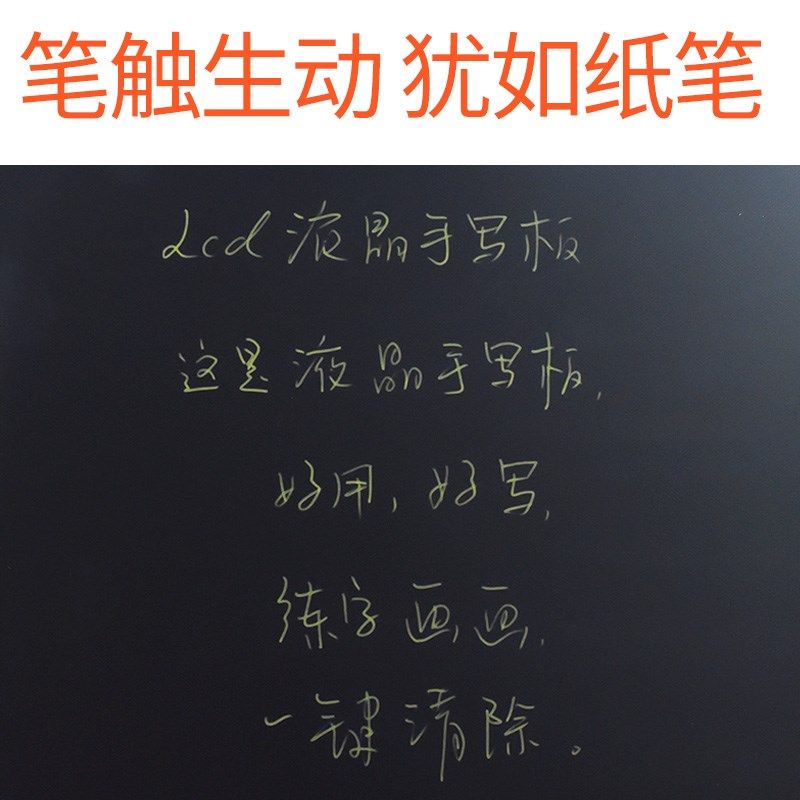 笔触生动 犹如纸笔
Lcd液晶手写板
这是液晶手写板,
好用,好写,
练字画画,
一键清除。